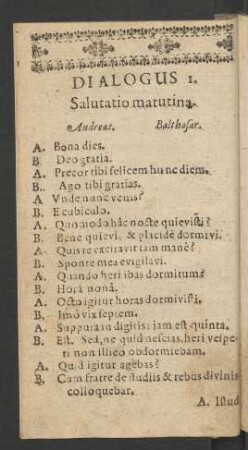 DIALOGUS 1.
Salutatio matutina.
Andreas. Balthasar.
A. Bona dies.
B. Deo gratia.
A. Precor tibi felicem hunc diem.
B. Ago tibi gratias.
A Vnde nunc venis?
B. E cubiculo.
A. Quomodo hâc nocte quievisti?
B. Bene quievi, & placidè dormivi.
A. Quis te excitavit tam manè?
B. Sponte mea evigilavi.
A. Quando heri ibas dormitum?
B. Horâ nonâ.
A. Octo igitur horas dormivisti.
B. Imò vix septem.
A. Supputa in digitis; jam est quinta.
B. Est. Sed, ne quid nescias, heri vespe-
ri non illico obdormiebam.
A. Quid igitur agebas?
B. Cum fratre de studiis & rebus divinis
colloquebar.
A. Istud